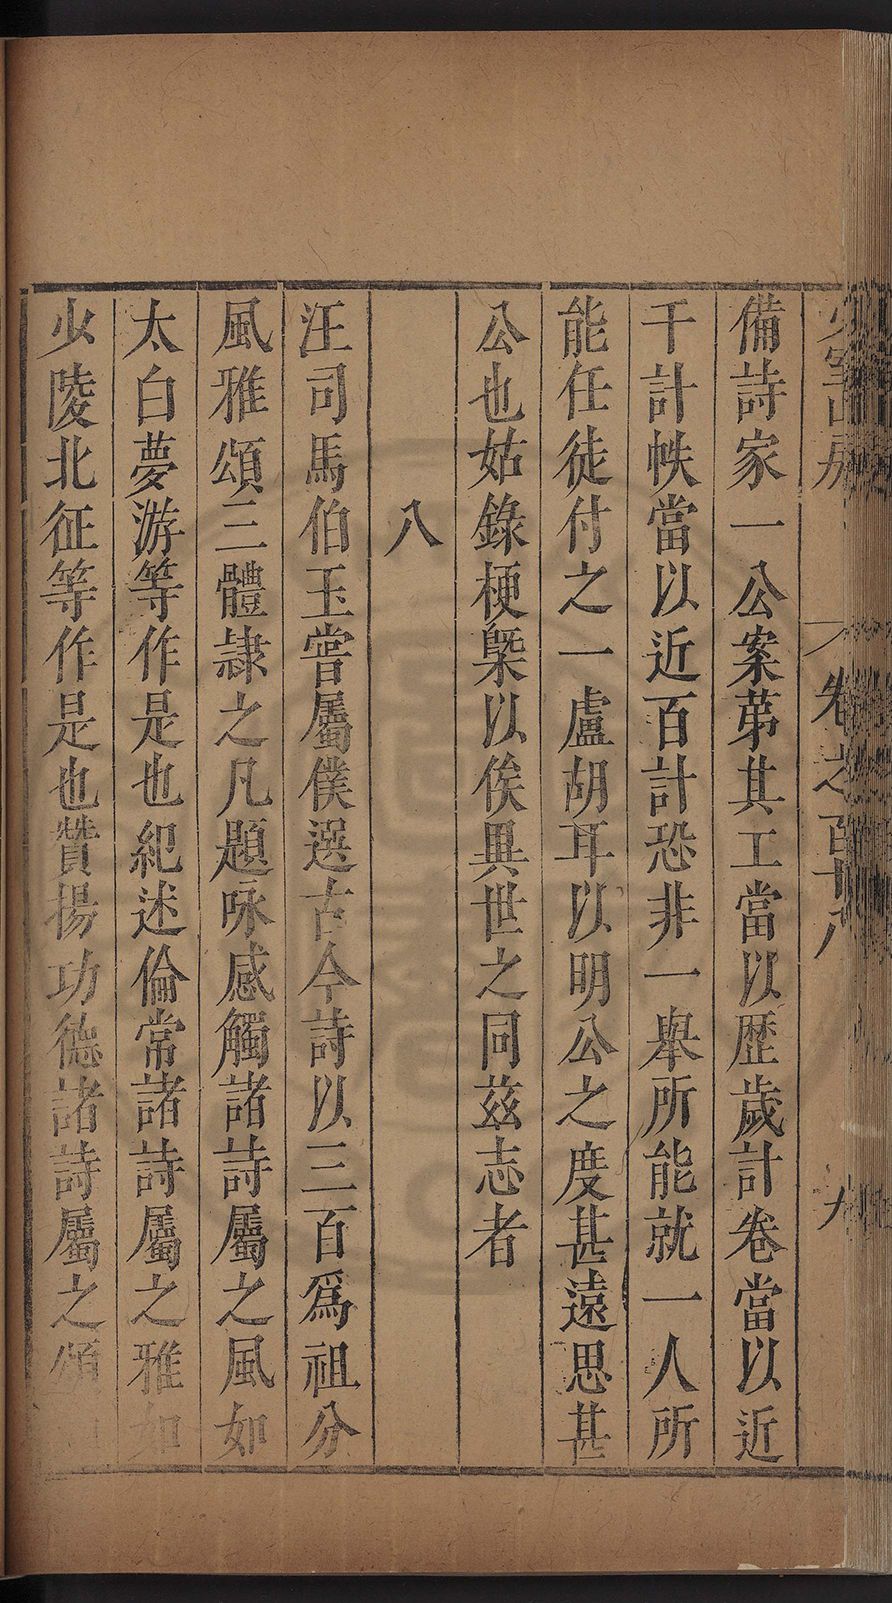 少室山房
卷之百十八
九
備詩家一公案苐其工當以歷歲計卷當以近
千計帙當以近百計恐非一舉所能就一人所
能任徒付之一盧胡耳以明公之度甚遠思甚
公也姑錄梗槩以俟異世之同茲志者
八
汪司馬伯玉嘗屬僕選古今詩以三百爲祖分
風雅頌三體隷之凡題咏感觸諸詩屬之風如
太白夢游等作是也紀述倫常諸詩屬之雅如
少陵北征等作是也贊揚功德諸詩屬之頌